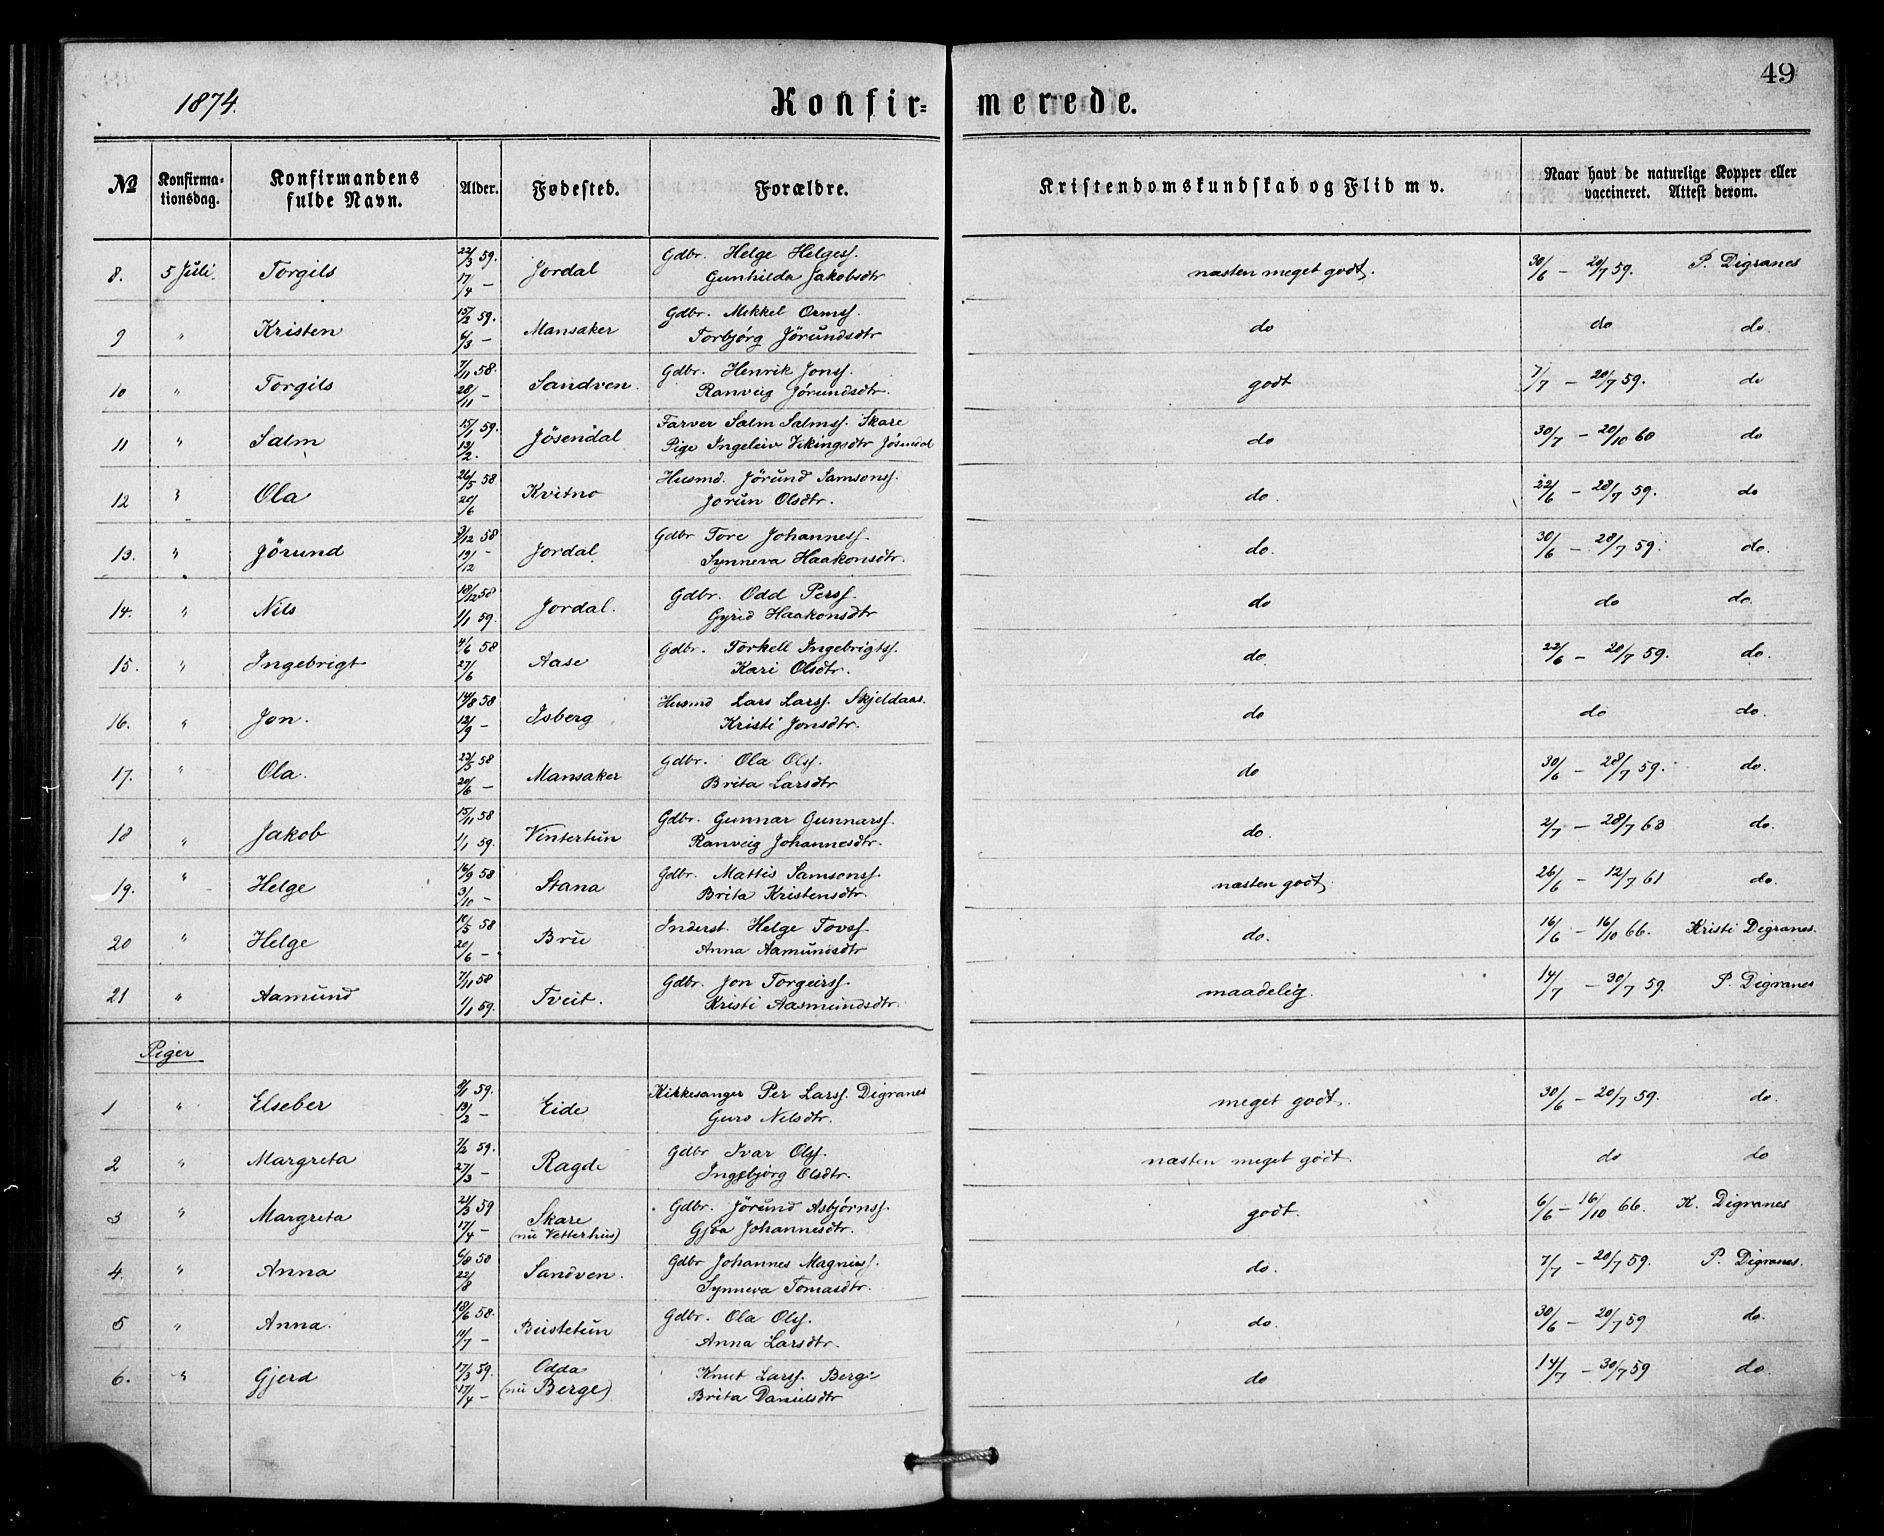 49
1874.
Konfir=
merede.
No
Konfirma-
tionsdag.
Konfirmandens
fulde Navn.
Alder.
Fødested.
Forældre.
Kristendomskundskab og Flid m v.
Naar havt de naturlige Kopper eller
vaccineret. Attest derom.
8. 5 Juli. Torgils 22/3 59. 17/4 – Jordal Gdbr. Helge Helgess. næsten meget godt. 30/6 – 20/7 59. P. Digranes
Gunhilda Jakobsdtr
9 " Kristen 15/2 59. 6/3 – Mansaker Gdbr. Mikkel Ormss. do do do.
Torbjørg Jörundsdtr
10 " Torgils 7/11 58. 28/11 – Sandven. Gdbr. Henrik Jonss. godt 7/7 – 20/7 59. do
Ranveig Jörundsdtr.
11 " Salm 15/1 59. 12/2. Jösendal Farver Salm Salmss. Skare do 30/7 – 20/10 60 do
Pige Ingeleiv Vikingsdtr Jösendal
12 " Ola 26/5 58 20/6 Kvitno Husmd. Jörund Samsonss. do. 22/6 – 28/7 59. do
Jorun Olsdtr.
13. " Jörund 3/12 58 19/12 – Jordal Gdbr Tore Johanness. do. 30/6 – 28/7 59. do.
Synneva Haakonsdtr.
14. " Nils 18/12 58 1/1 59. Jordal. Gdbr. Odd Perss. do do do.
Gyrid Haakonsdtr
15. " Ingebrigt 4/6 58 27/6 Aase Gdbr. Torkell Ingebrigtss. do. 22/6 – 20/7 59. do.
Kari Olsdtr.
16. " Jon. 14/8 58 12/9 – Isberg Husmd Lars Larss. Skjeldaas. do do do.
Kristi Jonsdtr.
17. " Ola. 22/5 58 20/6 – Mansaker Gdbr. Ola Olss. do 30/6 – 28/7 59. do.
Brita Larsdtr
18 " Jakob 15/11 58 1/1 59. Vintertun Gdbr. Gunnar Gunnarss. do. 2/7 – 28/7 63 do.
Ranveig Johannesdtr.
19. " Helge 16/9 58 3/10 – Stana Gdbr. Mattis Samsonss. næsten godt 26/6 – 12/7 61 do.
Brita Kristensdtr.
20 " Helge 10/5 58 20/6 – Bru Inderst. Helge Tovss. do. 16/6 – 16/10 66. Kristi Digranes.
Anna Aamundsdtr
21 " Aamund 7/11 58 1/1 59. Tveit. Gdbr. Jon Torgeirss. maadelig. 14/7 – 30/7 59. P. Digranes
Kristi Aasmundsdtr.
Piger
1 " Elseber 9/1 59. 13/2 – Eide Kirkesanger Per Larss. Digranes meget godt. 30/6 – 20/7 59. do.
Guro Nilsdtr.
2 " Margreta 7/2 59. 27/3 – Ragde Gdbr Ivar Olss. næsten meget godt. do do
Ingebjörg Olsdtr.
3 " Margreta 21/3 59 17/4 – Skare Gdbr. Jörund Asbjörnss. godt. 6/6 – 16/10 66. K. Digranes
(nu Vetterhus) Gjöa Johannesdtr.
4. " Anna 6/8 58 22/8 Sandven. Gdbr Johannes Magnuss. do. 7/7 – 20/7 59. P. Digranes.
Synneva Tomasdtr.
5 " Anna. 18/6 58. 11/7 – Bustetun Gdbr. Ola Olss. do. 30/6 – 20/7 59 do.
Anna Larsdtr.
6. " Gjerd 17/3 59. 17/4 – Odda Knut Larss. Berge do 14/7 – 30/7 59 do.
(nu Berge) Brita Danielsdtr